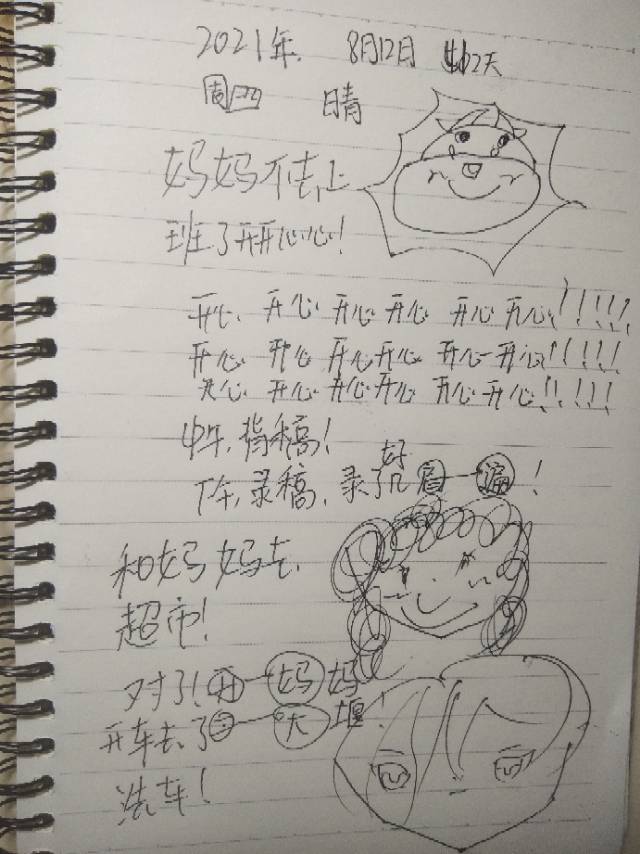 2021年. 8月12日
周四 晴
妈妈不去上
班了开开心心!
开心、开心 开心 开心 开心 开心!!!!!
开心 开心 开心 开心 开心 开心!!!!!
开心 开心 开心 开心 开心 开心!!!!!
中午,背稿!
下午,录稿,录了好几遍!
和妈妈去
超市!
对了!开 妈妈
开车去了 大堰!
洗车!